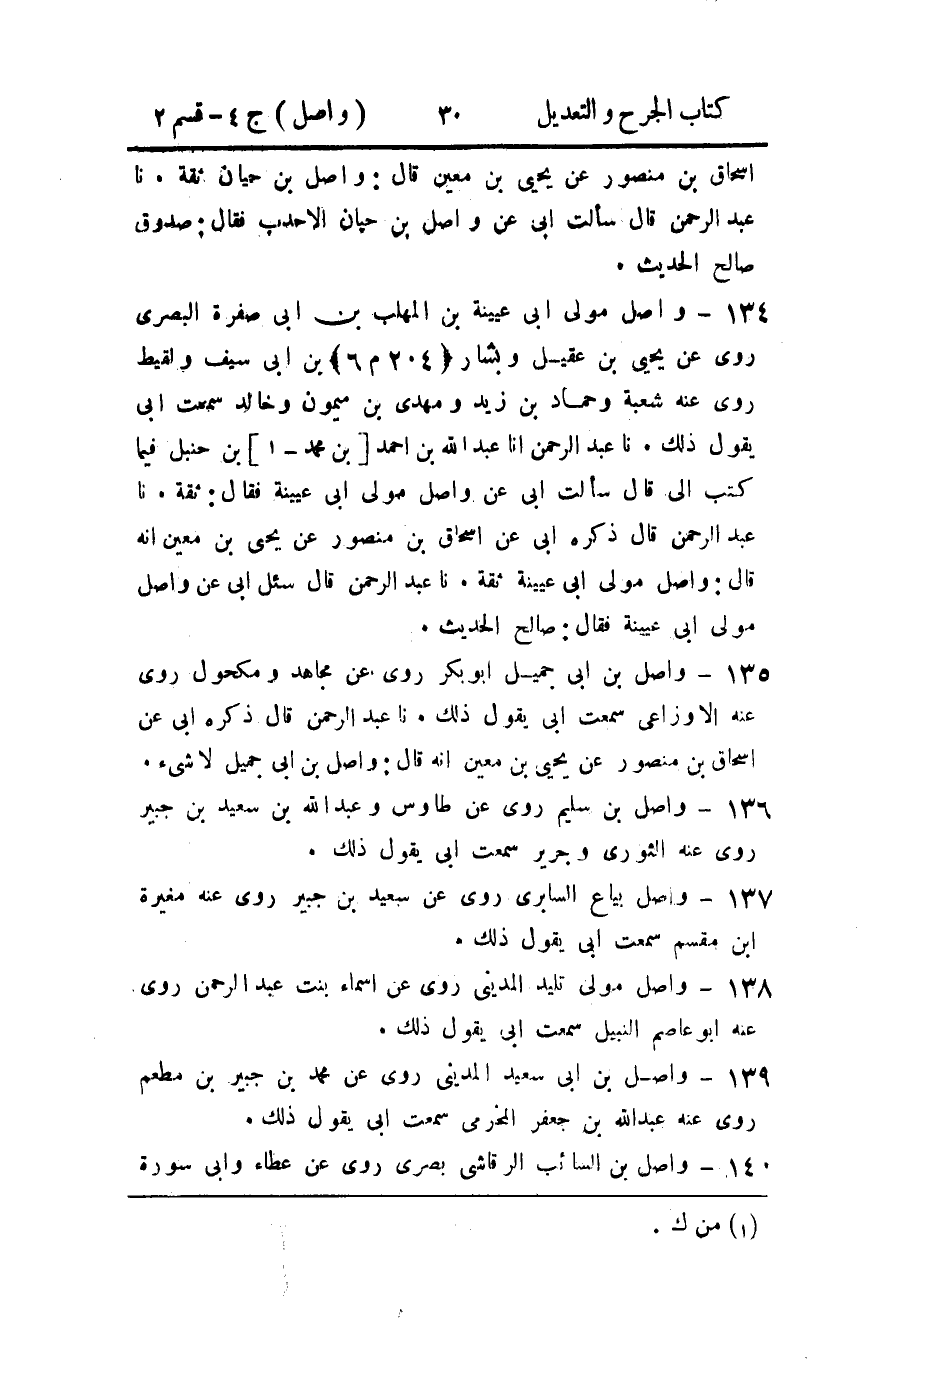 كتاب الجرح والتعديل ٣٠ (واصل) ج ٤ - قسم ٢
اسحاق بن منصور عن يحيى بن معين قال: واصل بن حيان ثقة . نا
عبد الرحمن قال سألت ابى عن واصل بن حيان الاحدب فقال: صدوق
صالح الحديث .
١٣٤ - واصل مولى ابى عيينة بن المهلب بن ابى صفرة البصرى
روى عن يحيى بن عقيل وبشار (٢٠٤ م ٦) بن ابى سيف ولقيط
روى عنه شعبة وحماد بن زيد ومهدى بن ميمون وخالد سمعت ابى
يقول ذلك . نا عبد الرحمن انا عبد الله بن احمد [بن محمد - ١] بن حنبل فيما
كتب الى قال سألت ابى عن واصل مولى ابى عيينة فقال: ثقة . نا
عبد الرحمن قال ذكره ابى عن اسحاق بن منصور عن يحيى بن معين انه
قال: واصل مولى ابى عيينة ثقة . نا عبد الرحمن قال سئل ابى عن واصل
مولى ابى عيينة فقال: صالح الحديث .
١٣٥ - واصل بن ابى جميل ابو بكر روى عن مجاهد ومكحول روى
عنه الاوزاعى سمعت ابى يقول ذلك . نا عبد الرحمن قال ذكره ابى عن
اسحاق بن منصور عن يحيى بن معين انه قال: واصل بن ابى جميل لا شىء .
١٣٦ - واصل بن سليم روى عن طاوس وعبد الله بن سعيد بن جبير
روى عنه الثورى وجرير سمعت ابى يقول ذلك .
١٣٧ - واصل بياع السابرى روى عن سعيد بن جبير روى عنه مغيرة
ابن مقسم سمعت ابى يقول ذلك .
١٣٨ - واصل مولى تليد المدينى روى عن اسماء بنت عبد الرحمن روى
عنه ابو عاصم النبيل سمعت ابى يقول ذلك .
١٣٩ - واصل بن ابى سعيد المدينى روى عن محمد بن جبير بن مطعم
روى عنه عبد الله بن جعفر المخرمى سمعت ابى يقول ذلك .
١٤٠ - واصل بن السائب الرقاشى بصرى روى عن عطاء وابى سورة
(١) من ك .